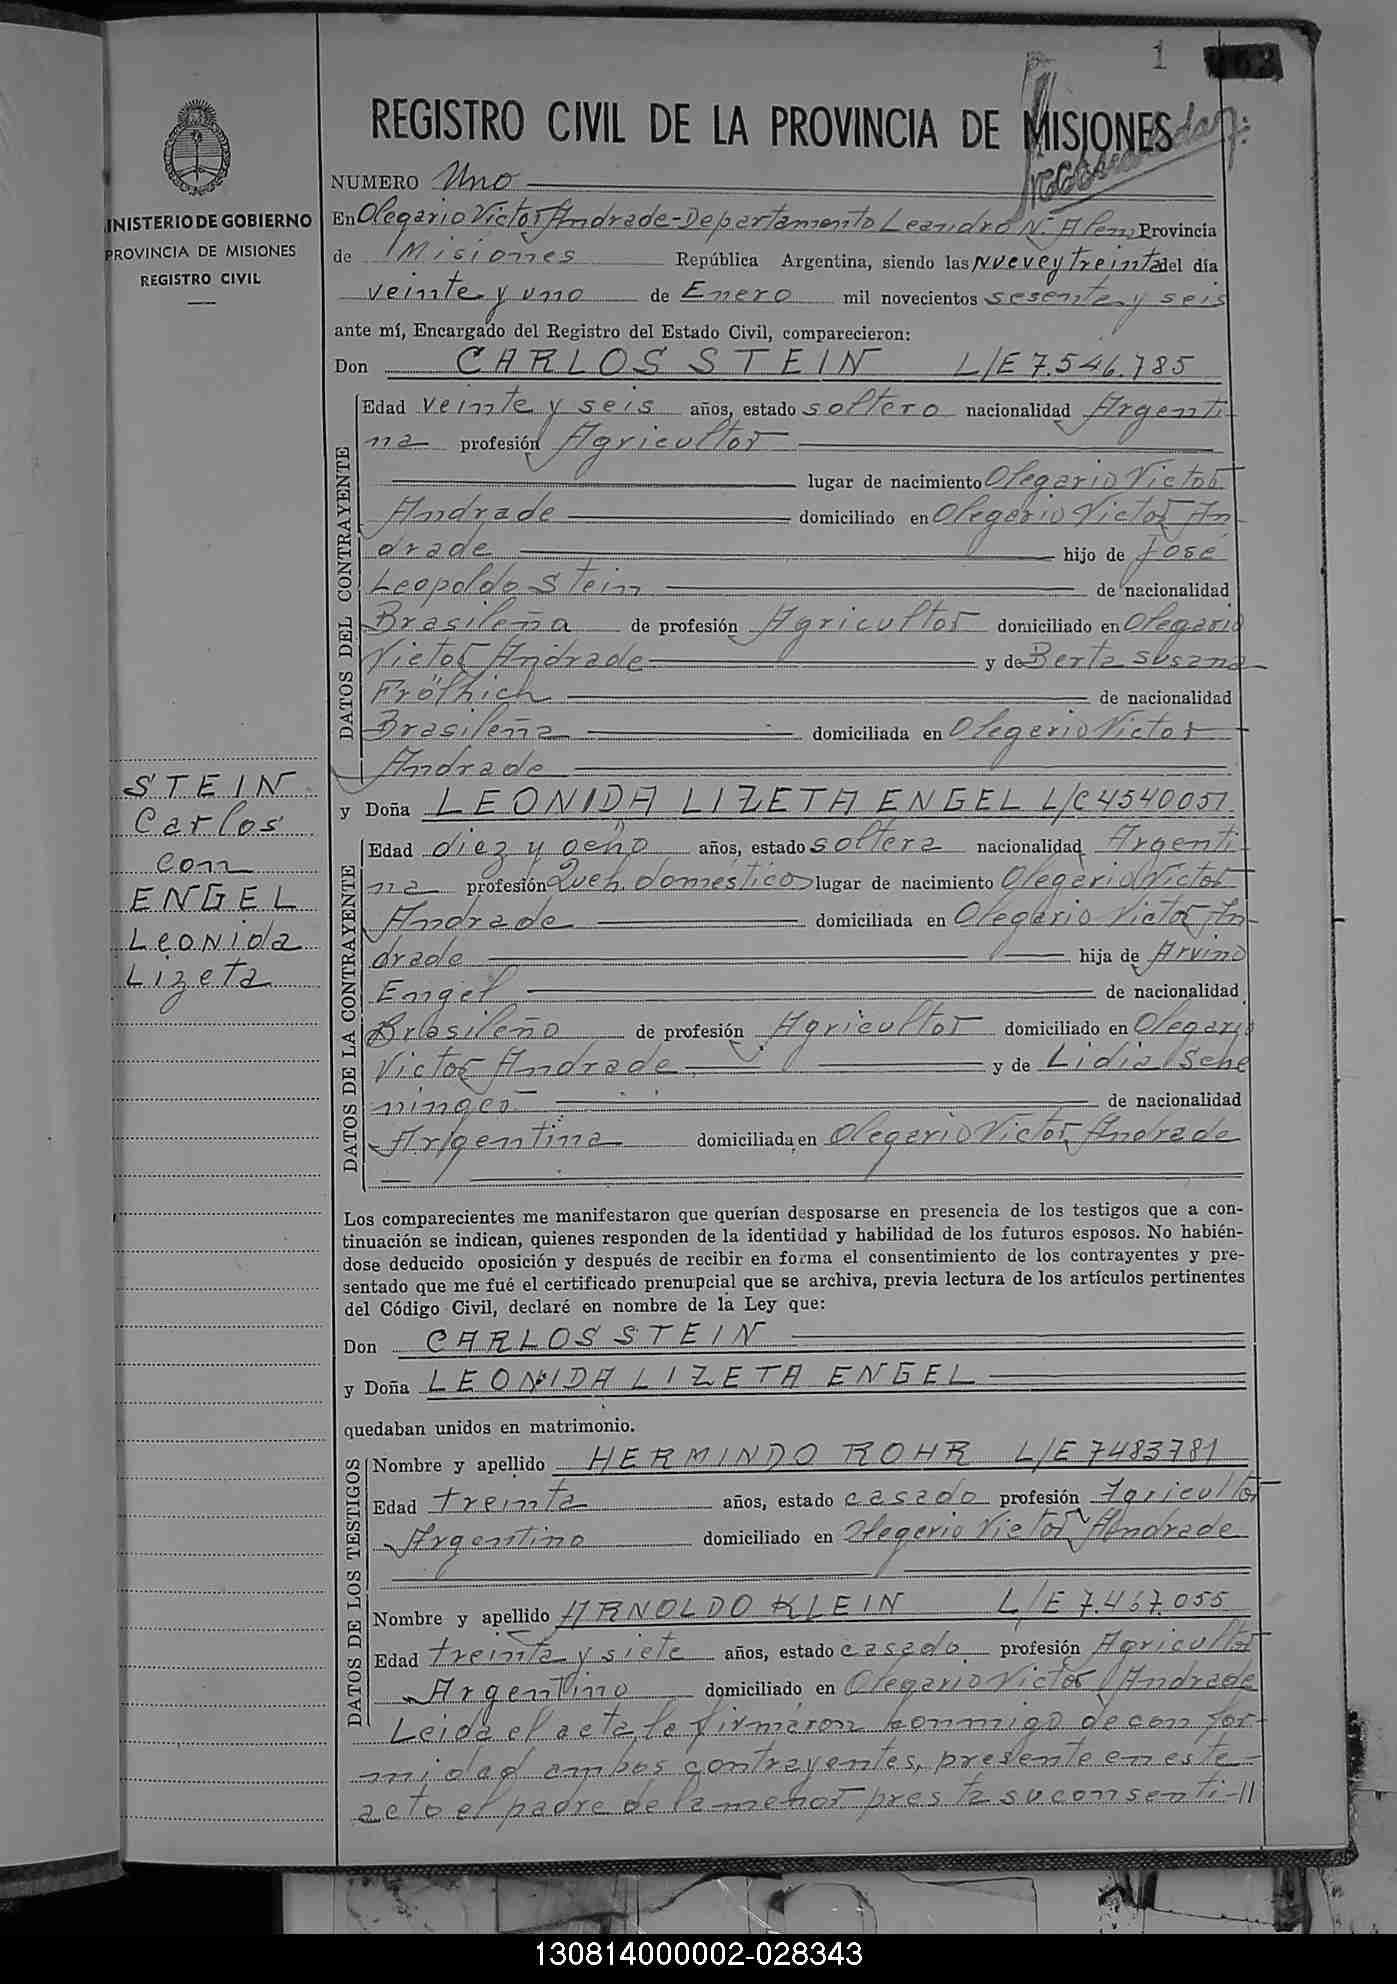 1
REGISTRO CIVIL DE LA PROVINCIA DE MISIONES
NUMERO Uno
MINISTERIO DE GOBIERNO
PROVINCIA DE MISIONES
REGISTRO CIVIL
En Olegario Victor Andrade-Departamento Leandro N. Alem Provincia
de Misiones República Argentina, siendo las Nueve y treinta del día
veinte y uno de Enero mil novecientos sesenta y seis
ante mí, Encargado del Registro del Estado Civil, comparecieron:
Don CARLOS STEIN L/E 7.546.785
DATOS DEL CONTRAYENTE
Edad veinte y seis años, estado soltero nacionalidad Argenti
na profesión Agricultor
lugar de nacimiento Olegario Victor
Andrade domiciliado en Olegario Victor An
drade hijo de José
Leopoldo Stein de nacionalidad
Brasileña de profesión Agricultor domiciliado en Olegario
Victor Andrade y de Berta Susana
Fröhlich de nacionalidad
Brasileña domiciliada en Olegario Victor
Andrade
STEIN
Carlos
con
ENGEL
Leonida
Lizeta
y Doña LEONIDA LIZETA ENGEL L/C 4540051
DATOS DE LA CONTRAYENTE
Edad diez y ocho años, estado soltera nacionalidad Argenti
na profesión Queh. domésticos lugar de nacimiento Olegario Victor
Andrade domiciliada en Olegario Victor An
drade hija de Arvino
Engel de nacionalidad
Brasileño de profesión Agricultor domiciliado en Olegario
Victor Andrade y de Lidia Sche
ninger de nacionalidad
Argentina domiciliada en Olegario Victor Andrade
Los comparecientes me manifestaron que querían desposarse en presencia de los testigos que a con-
tinuación se indican, quienes responden de la identidad y habilidad de los futuros esposos. No habién-
dose deducido oposición y después de recibir en forma el consentimiento de los contrayentes y pre-
sentado que me fué el certificado prenupcial que se archiva, previa lectura de los artículos pertinentes
del Código Civil, declaré en nombre de la Ley que:
Don CARLOS STEIN
y Doña LEONIDA LIZETA ENGEL
quedaban unidos en matrimonio.
DATOS DE LOS TESTIGOS
Nombre y apellido HERMINDO ROHR L/E 7483781
Edad treinta años, estado casado profesión Agricultor
Argentino domiciliado en Olegario Victor Andrade
Nombre y apellido ARNOLDO KLEIN L/E 7.467.055
Edad treinta y siete años, estado casado profesión Agricultor
Argentino domiciliado en Olegario Victor Andrade
Leida el acta la firmaron conmigo de confor-
midad ambos contrayentes, presente en este
acto el padre de la menor presta su consenti-//
130814000002-028343